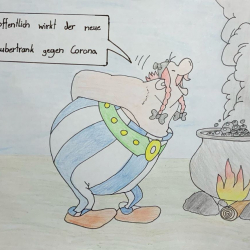 offentlich wirkt der neue
ubertrank gegen Corona